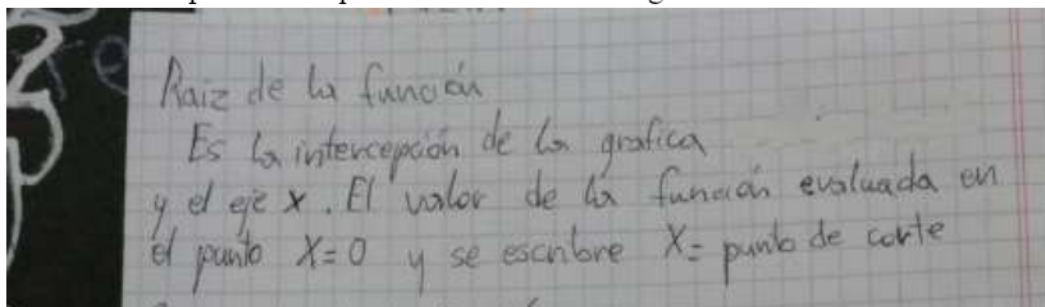 Raiz de la función
Es la intercepción de la grafica
y el eje x. El valor de la función evaluada en
el punto X=0 y se escribre X= punto de corte